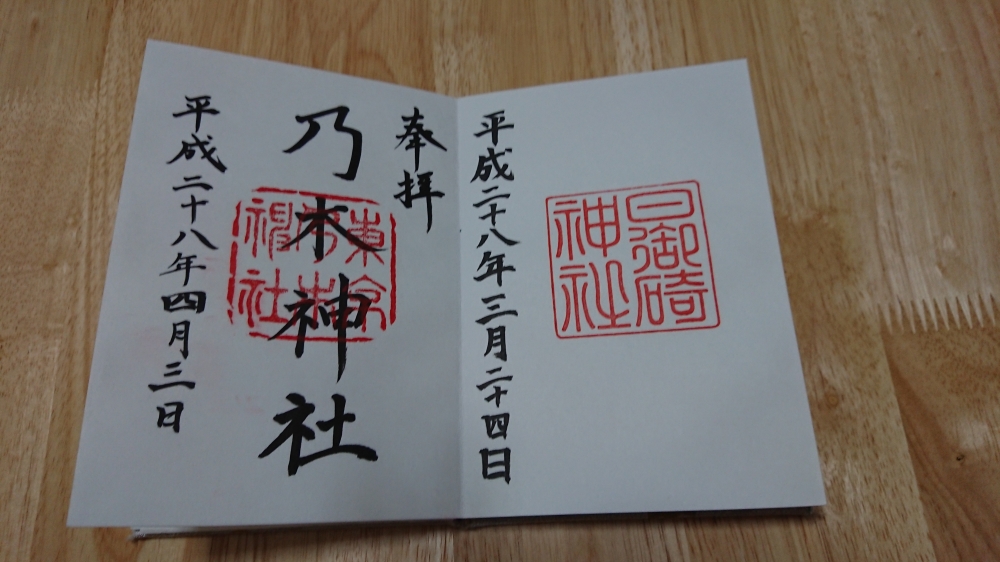 日御碕
神社
平成二十八年三月二十四日
奉拝
乃木神社
東京
乃木
神社
平成二十八年四月三日